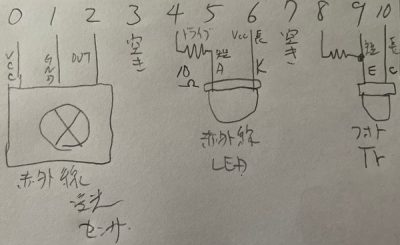 0 1 2 3 4 5 6 7 8 9 10
VCC
GND
OUT
空き
ドライブ
10
Ω
短
A
Vcc
長
K
空き
短
E
長
C
赤外線
受光
センサ
赤外線
LED
フォト
Tr